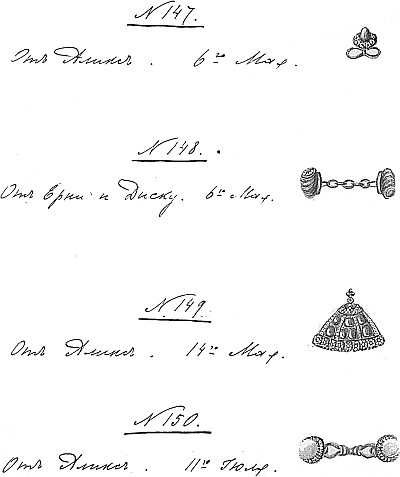 N 147.
Отъ Аликсъ. 6го Мая.
N 148.
Отъ Ерни и Диску. 6го Мая.
N 149.
Отъ Аликсъ. 14го Мая.
N 150.
Отъ Аликсъ. 11го Iюля.